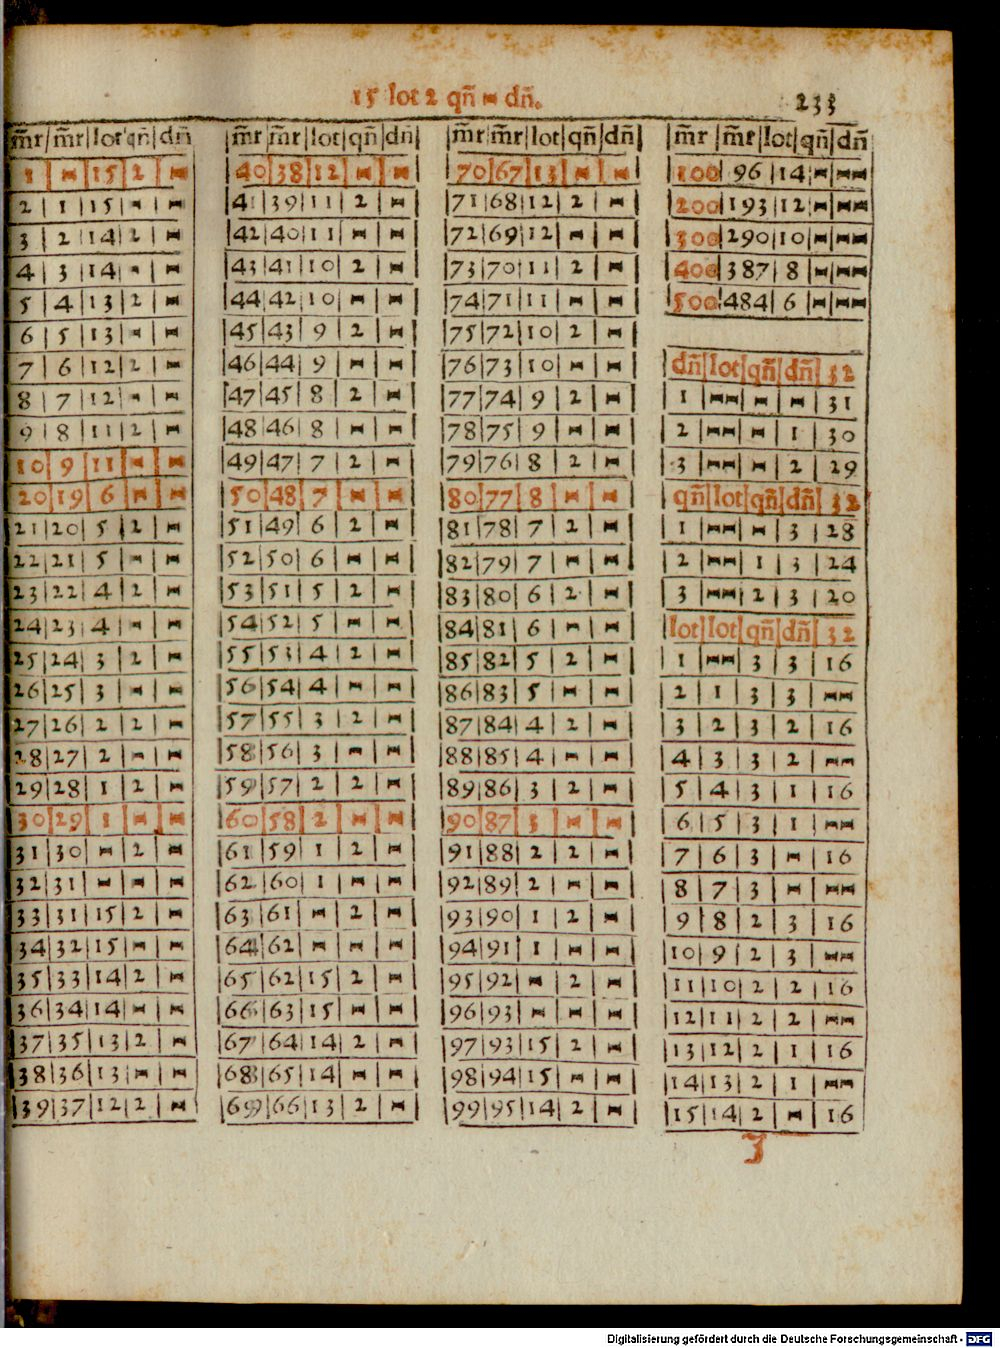 15 lot 2 qñ ⧓ dñ.
233
m̃r m̃r lot qñ dñ
1 ⧓ 15 2 ⧓
2 1 15 ⧓ ⧓
3 2 14 2 ⧓
4 3 14 ⧓ ⧓
5 4 13 2 ⧓
6 5 13 ⧓ ⧓
7 6 12 2 ⧓
8 7 12 ⧓ ⧓
9 8 11 2 ⧓
10 9 11 ⧓ ⧓
20 19 6 ⧓ ⧓
21 20 5 2 ⧓
22 21 5 ⧓ ⧓
23 22 4 2 ⧓
24 23 4 ⧓ ⧓
25 24 3 2 ⧓
26 25 3 ⧓ ⧓
27 26 2 2 ⧓
28 27 2 ⧓ ⧓
29 28 1 2 ⧓
30 29 1 ⧓ ⧓
31 30 ⧓ 2 ⧓
32 31 ⧓ ⧓ ⧓
33 31 15 2 ⧓
34 32 15 ⧓ ⧓
35 33 14 2 ⧓
36 34 14 ⧓ ⧓
37 35 13 2 ⧓
38 36 13 ⧓ ⧓
39 37 12 2 ⧓
m̃r m̃r lot qñ dñ
40 38 12 ⧓ ⧓
41 39 11 2 ⧓
42 40 11 ⧓ ⧓
43 41 10 2 ⧓
44 42 10 ⧓ ⧓
45 43 9 2 ⧓
46 44 9 ⧓ ⧓
47 45 8 2 ⧓
48 46 8 ⧓ ⧓
49 47 7 2 ⧓
50 48 7 ⧓ ⧓
51 49 6 2 ⧓
52 50 6 ⧓ ⧓
53 51 5 2 ⧓
54 52 5 ⧓ ⧓
55 53 4 2 ⧓
56 54 4 ⧓ ⧓
57 55 3 2 ⧓
58 56 3 ⧓ ⧓
59 57 2 2 ⧓
60 58 2 ⧓ ⧓
61 59 1 2 ⧓
62 60 1 ⧓ ⧓
63 61 ⧓ 2 ⧓
64 62 ⧓ ⧓ ⧓
65 62 15 2 ⧓
66 63 15 ⧓ ⧓
67 64 14 2 ⧓
68 65 14 ⧓ ⧓
69 66 13 2 ⧓
m̃r m̃r lot qñ dñ
70 67 13 ⧓ ⧓
71 68 12 2 ⧓
72 69 12 ⧓ ⧓
73 70 11 2 ⧓
74 71 11 ⧓ ⧓
75 72 10 2 ⧓
76 73 10 ⧓ ⧓
77 74 9 2 ⧓
78 75 9 ⧓ ⧓
79 76 8 2 ⧓
80 77 8 ⧓ ⧓
81 78 7 2 ⧓
82 79 7 ⧓ ⧓
83 80 6 2 ⧓
84 81 6 ⧓ ⧓
85 82 5 2 ⧓
86 83 5 ⧓ ⧓
87 84 4 2 ⧓
88 85 4 ⧓ ⧓
89 86 3 2 ⧓
90 87 3 ⧓ ⧓
91 88 2 2 ⧓
92 89 2 ⧓ ⧓
93 90 1 2 ⧓
94 91 1 ⧓ ⧓
95 92 ⧓ 2 ⧓
96 93 ⧓ ⧓ ⧓
97 93 15 2 ⧓
98 94 15 ⧓ ⧓
99 95 14 2 ⧓
m̃r m̃r lot qñ dñ
100 96 14 ⧓ ⧓⧓
200 193 12 ⧓ ⧓⧓
300 290 10 ⧓ ⧓⧓
400 387 8 ⧓ ⧓⧓
500 484 6 ⧓ ⧓⧓
dñ lot qñ dñ 32
1 ⧓⧓ ⧓ ⧓ 31
2 ⧓⧓ ⧓ 1 30
3 ⧓⧓ ⧓ 2 29
qñ lot qñ dñ 32
1 ⧓⧓ ⧓ 3 28
2 ⧓⧓ 1 3 24
3 ⧓⧓ 2 3 20
lot lot qñ dñ 32
1 ⧓⧓ 3 3 16
2 1 3 3 ⧓⧓
3 2 3 2 16
4 3 3 2 ⧓⧓
5 4 3 1 16
6 5 3 1 ⧓⧓
7 6 3 ⧓ 16
8 7 3 ⧓ ⧓⧓
9 8 2 3 16
10 9 2 3 ⧓⧓
11 10 2 2 16
12 11 2 2 ⧓⧓
13 12 2 1 16
14 13 2 1 ⧓⧓
15 14 2 ⧓ 16
J
Digitalisierung gefördert durch die Deutsche Forschungsgemeinschaft - DFG